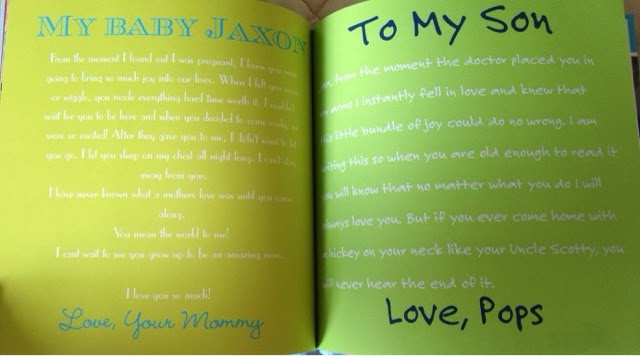 MY BABY JAXON
From the moment I found out I was pregnant, I knew you were
going to bring so much joy into our lives. When I felt you
or wiggle, you made everything hard time worth it. I couldn't
wait for you to be here and when you decided to come we
were so excited! After they gave you to me, I didn't want to let
you go. I let you sleep on my chest all night long. I can't stay
away from you.
I have never known what a mothers love was until you came
along.
You mean the world to me!
I cant wait to see you grow up to be an amazing man.
I love you so much!
Love, Your Mommy
TO MY SON
from the moment the doctor placed you in
my arms I instantly fell in love and knew that
this little bundle of joy could do no wrong. I am
writing this so when you are old enough to read it
you will know that no matter what you do I will
always love you. But if you ever come home with
a hickey on your neck like your Uncle Scotty, you
will never hear the end of it.
Love, Pops